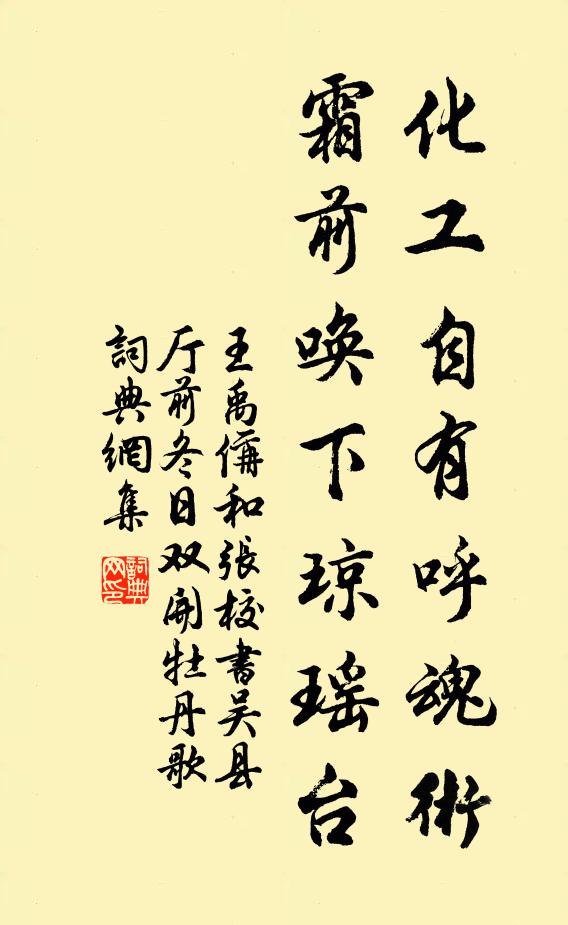 化工自有呼魂術
霜前唤下琼瑶台
王禹偁和張校書吴县
厅前冬日双開牡丹歌
詞典網集
詞典
网印